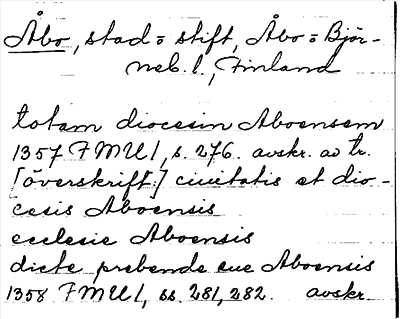 Åbo, stad o stift, Åbo o Björ-
neb. l., Finland
totam diocesin Aboensem
1357 FMU 1, s. 276. avskr. av tr.
[överskrift:] ciuitatis et dio-
cesis Aboensis
ecclesie Aboensis
dicte prebende eue Aboensis
1358 FMU 1, ss. 281, 282. avskr